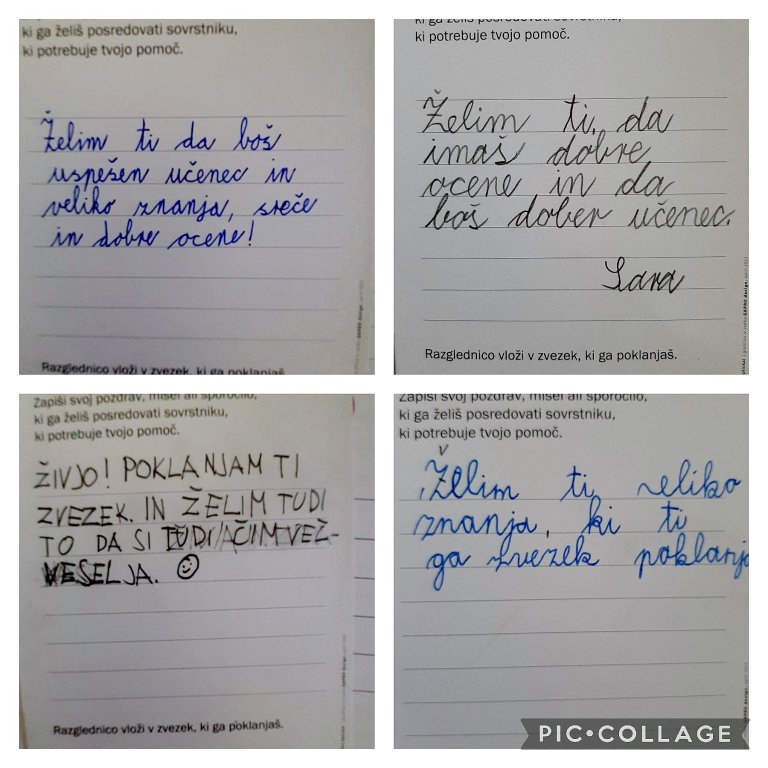 ki ga želiš posredovati sovrstniku,
ki potrebuje tvojo pomoč.
Želim ti da boš
uspešen učenec in
veliko znanja, sreče
in dobre ocene!
Razglednico vloži v zvezek, ki ga poklanjaš.
ki ga želiš posredovati sovrstniku,
ki potrebuje tvojo pomoč.
Želim ti, da
imaš dobre
ocene in da
boš dober učenec.
Sara
Razglednico vloži v zvezek, ki ga poklanjaš.
Zapiši svoj pozdrav, misel ali sporočilo,
ki ga želiš posredovati sovrstniku,
ki potrebuje tvojo pomoč.
ŽIVJO! POKLANJAM TI
ZVEZEK. IN ŽELIM TUDI
TO DA SI TUDI ČIM VEŽ-
VESELJA. ☺
Razglednico vloži v zvezek, ki ga poklanjaš.
Zapiši svoj pozdrav, misel ali sporočilo,
ki ga želiš posredovati sovrstniku,
ki potrebuje tvojo pomoč.
Želim ti veliko
znanja, ki ti
ga zvezek poklanja
PIC•COLLAGE